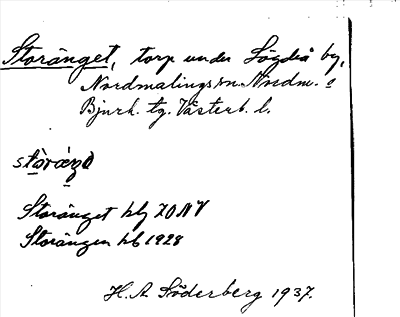 Storänget, torp under Lögdeå by,
Nordmalings sn. Nordm. o
Bjurh. tg. Västerb. l.
Storänget
Storängen hb 1928
H. A. Söderberg 1937.